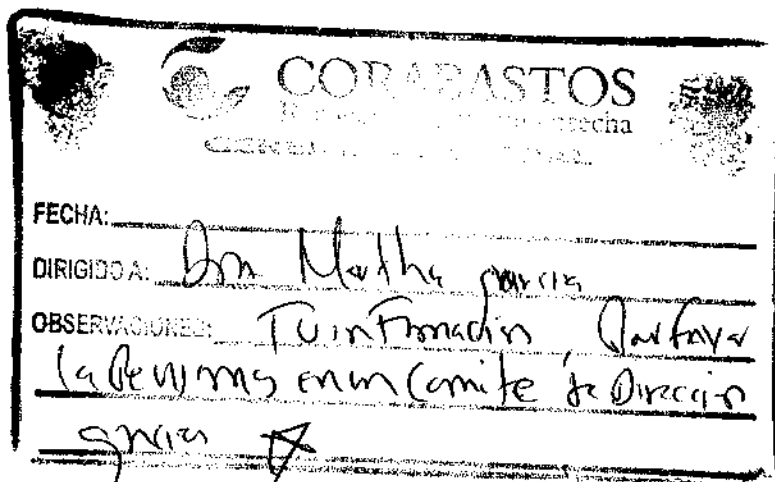 CORABASTOS
FECHA:
DIRIGIDO A: Dra Martha garcia
OBSERVACIONES: Tu información, Por favor
la Revisamos en un Comite de Dirección
gracias